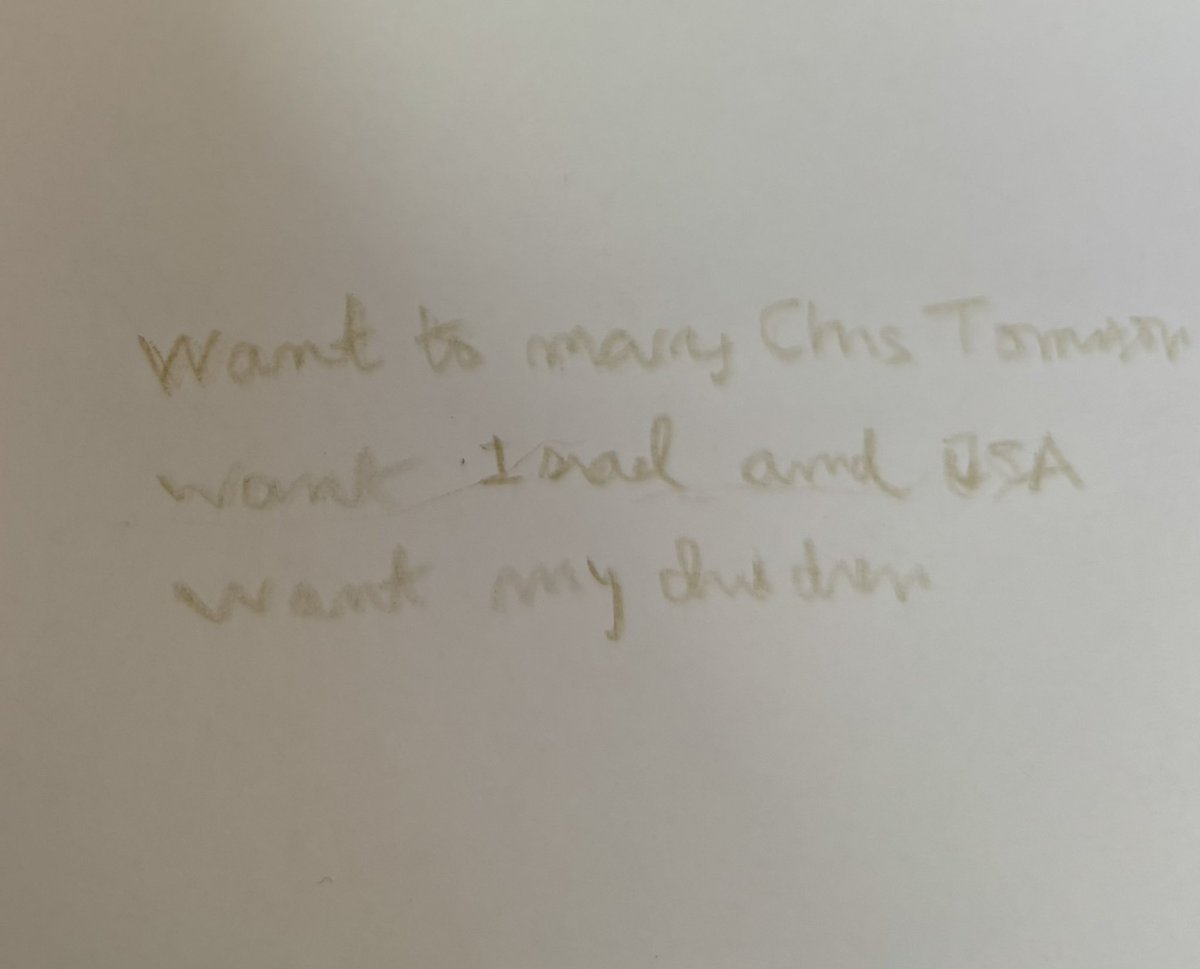 Want to marry Chris Tomnson
want Israel and USA
want my children